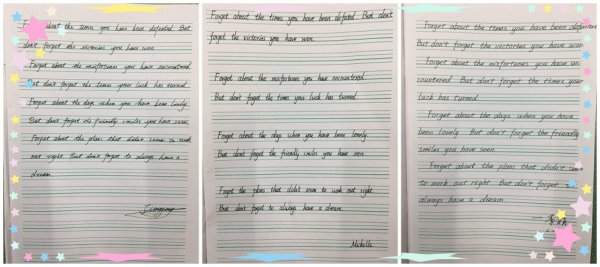 about the times you have been defeated. But
don't forget the victories you have won.
Forget about the misfortunes you have encountered.
But don't forget the times your luck has turned.
Forget about the days when you have been lonely.
But don't forget the friendly smiles you have seen.
Forget about the plans that didn't seem to work
out right. But don't forget to always have a
dream.
Forget about the times you have been defeated. But don't
forget the victories you have won.
Forget about the misfortunes you have encountered.
But don't forget the times your luck has turned.
Forget about the days when you have been lonely.
But don't forget the friendly smiles you have seen.
Forget the plans that didn't seem to work out right.
But don't forget to always have a dream.
Michelle
Forget about the times you have been
But don't forget the victories you have won.
Forget about the misfortunes you have en-
countered. But don't forget the times your
luck has turned.
Forget about the days when you have
been lonely. But don't forget the friendly
smiles you have seen.
Forget about the plans that didn't seem
to work out right. But don't forget
always have a dream.